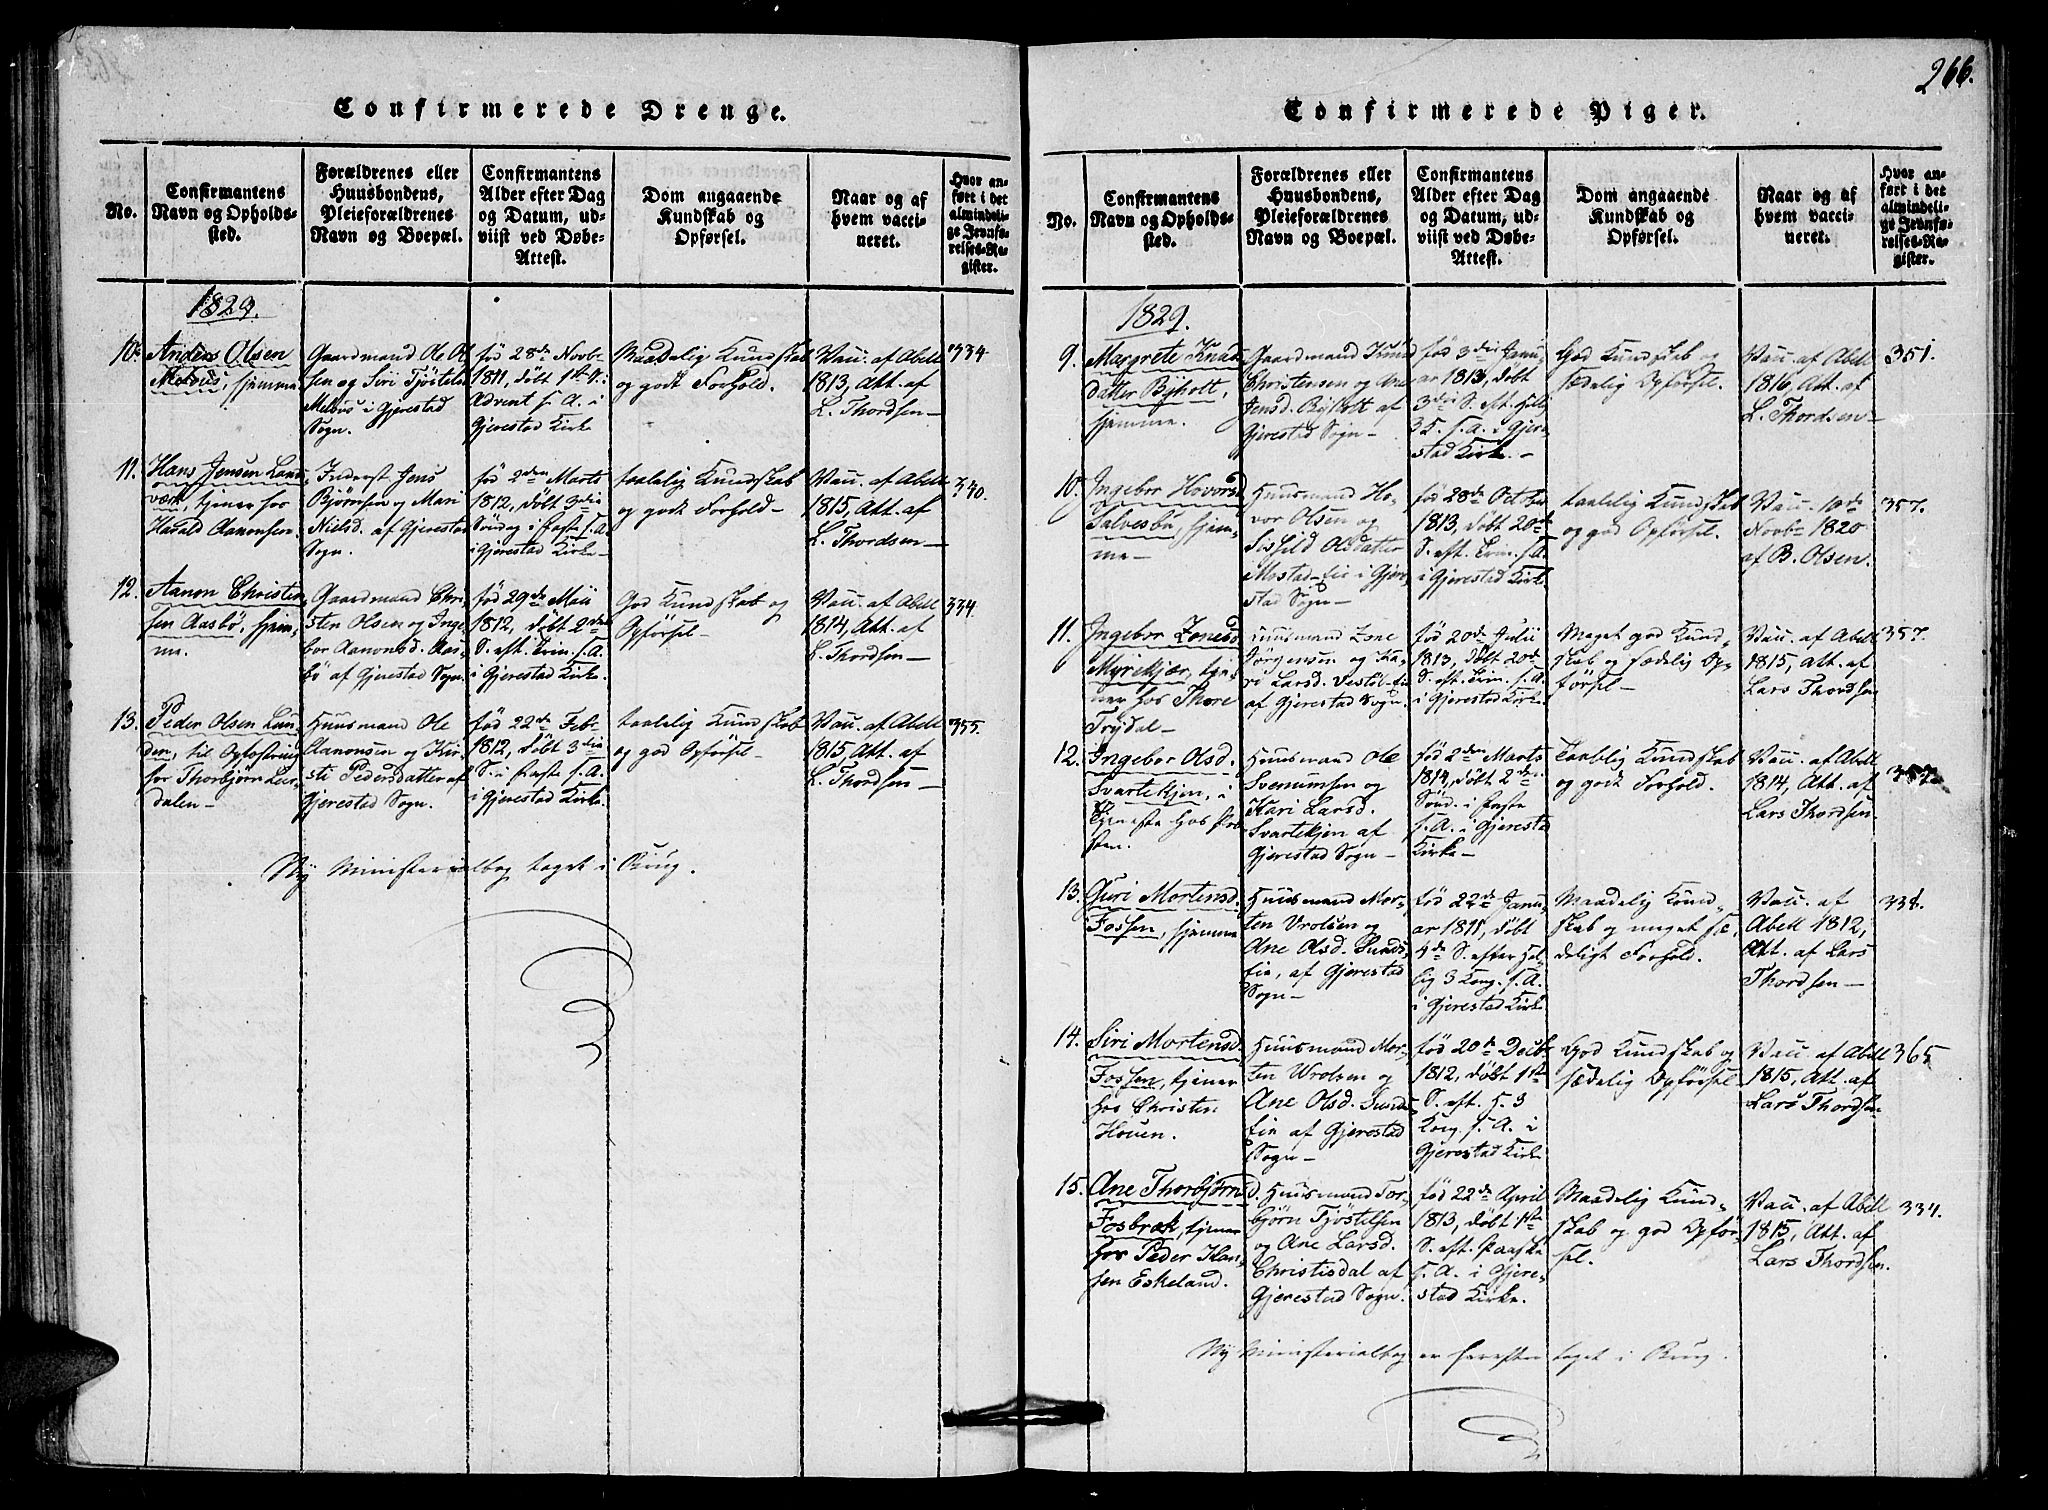 266.
Confirmerede Drenge.
No.
Confirmantens
Navn og Opholds-
sted.
Forældrenes eller
Huusbondens,
Pleieforældrenes
Navn og Boepæl.
Confirmantens
Alder efter Dag
og Datum, ud-
viist ved Døbe-
Attest.
Dom angaaende
Kundskab og
Opførsel.
Naar og af
hvem vacci-
neret.
Hvor an-
ført i det
almindeli-
ge Jevnfø-
relses-Re-
gister.
1829.
10.
Anders Olsen
Melaas, hjemme
Gaardmand Ole Ol-
sen og Siri Tjöstelsd.
i Gjerestad
Sogn.
fød 28de Novbr
1811, döbt 1ste S. i
Advent s. A. i
Gjerestad Kirke
Maadelig Kundskab
og godt Forhold.
Vac. af Abell
1813, Att. af
L. Thordsen—
334
11.
Hans Jensen Land-
værk, tjener hos
Harald Aanonsen.
Inderst Jens
Björnsen og Mari
Nielsd. af Gjerestad
Sogn.
fød 2den Marts
1812, döbt 3die
Söndag i Faste s. A.
i Gjerestad Kirke—
taalelig Kundskab
og godt Forhold—
Vac. af Abell
1815, Att. af
L. Thordsen—
340.
12.
Aanon Christen-
sen Aasbö, hjem-
me.
Gaardmand Chri-
sten Olsen og Inge-
bor Aanonsd. Aas-
bö af Gjerestad Sogn.
fød 29de Maii
1812, döbt 2den
S. eft. Trin. s. A.
i Gjerestad Kirke.
God Kundskab og
Opførsel—
Vac. af Abell
1814, Att. af
L. Thordsen—
334.
13.
Peder Olsen Lun-
den, til Opfostring
hos Thorbjörn Lier-
dalen—
Huusmand Ole
Aanonsen og Kir-
sti Pedersdatter af
Gjerestad Sogn.
fød 22de Febr
1812, döbt 3die
S. i Faste s. A.
i Gjerestad Kirke.
taalelig Kundskab
og god Opførsel—
Vac. af Abell
1815 Att. af
L. Thordsen—
355.
Ny Ministerialbog taget i Brug.
Confirmerede Piger.
No.
Confirmantens
Navn og Opholds-
sted.
Forældrenes eller
Huusbondens,
Pleieforældrenes
Navn og Boepæl.
Confirmantens
Alder efter Dag
og Datum, ud-
viist ved Døbe-
Attest.
Dom angaaende
Kundskab og
Opførsel.
Naar og af
hvem vacci-
neret.
Hvor an-
ført i det
almindeli-
ge Jevnfø-
relses-Re-
gister.
1829.
9.
Margrete Knud-
datter Byholt,
hjemme.
Gaardmand Knud
Christensen og Ane
Jensd. Byholt af
Gjerestad Sogn—
fød 3die Janu-
ar 1813, döbt
3die S. eft. Hellig
3 K. s. A. i Gjere-
stad Kirke.—
God Kundskab og
sædelig Opførsel.
Vac. af Abell
1816, Att. af
L. Thordsen—
351.
10.
Ingebor Hovorsd.
Salvesbu, hjem-
me—
Huusmand Ho-
vor Olsen og
Olsdatter
Mostad-Eie i Gjere-
stad Sogn—
fød 28de October
1813, döbt 20de
S. eft. Trin. s. A.
i Gjerestad Kirke.
taalelig Kundskab
og god Opførsel.
Vac. 10de
Novbr 1820
af B. Olsen.
357.
11.
Ingebor Zonesd.
Myrekjær, tje-
ner hos Thore
Trydal—
Huusmand Zone
Jörgensen og Ka-
ri Larsd. Vestöl-Eie
af Gjerestad Sogn.
fød 20de Julii
1813, döbt 20de
S. eft. Trin. s. A.
i Gjerestad Kirke.
Meget god Kund-
skab og sædelig Op-
førsel—
Vac. af Abell
1815, Att. af
Lars Thordsen
357.
12.
Ingebor Olsd.
Svartekjen, i
Tjeneste hos
Huusmand Ole
Svenumsen og
Kari Larsd.
Svartekjen af
Gjerestad Sogn—
fød 2den Marts
1814, döbt 2den
Sönd. i Faste
s. A. i Gjerestad
Kirke—
Taalelig Kundskab
og godt Forhold.
Vac. af Abell
1814, Att. af
Lars Thordsen.
357.
13.
Guri Mortensd.
Fossen, hjemme
Huusmand Mor-
ten Vrolsen og
Ane Olsd. Sunds-
Eie, af Gjerestad
Sogn—
fød 22de Janu-
ar 1811, döbt
4de S. efter Hel-
lig 3 Kong. s. A.
i Gjerestad Kirke
Maadelig Kund-
skab og meget sæ-
deligt Forhold.
Vac. af
Abell 1812,
Att. af Lars
Thordsen—
338.
14.
Siri Mortensd.
Fossen, tjener
hos Christen
Hoven.
Huusmand Mor-
ten Wrolsen og
Ane Olsd. Sunds-
Eie af Gjerestad
Sogn—
fød 20de Decbr
1812, döbt 1ste
S. eft. H. 3
Kong. s. A. i
Gjerestad Kirke
God Kundskab og
sædelig Opførsel—
Vac. af Abell
1815, Att. af
Lars Thordsen
365
15.
Ane Thorbjörnsd.
Fosbræk, tjener
hos Peder Han-
sen Eskeland.
Huusmand Tor-
björn Tjöstelsen
og Ane Larsd.
Christisdal af
Gjerestad Sogn.
fød 22de April
1813, döbt 1ste
S. eft. Paaske
s. A. i Gjere-
stad Kirke.
Maadelig Kund-
skab og god Opför-
sel.
Vac. af Abell
1815, Att. af
Lars Thordsen.
334.
Ny Ministerialbog er herefter taget i Brug.